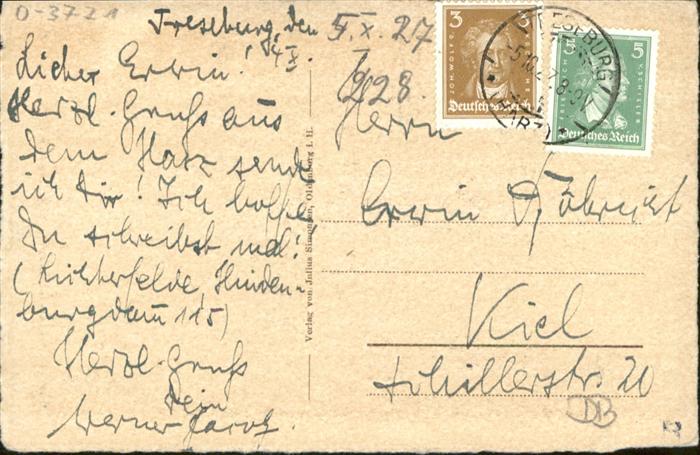 D-3721
Treseburg, den 4.X.
5.X.27
Lieber Erwin!
Herzl. Gruß aus
dem Harz sende
ich Dir! Ich hoffe
Du schreibst mal.
(Lichterfelde Hinden-
burgdamm 115)
Herzl. Gruß
Dein
Werner Jacob.
Verlag von Julius Simonsen, Oldenburg i. H.
228.
Herrn
Erwin
Kiel
Schillerstr. 20
DB
3 3
JOH. WOLFG.
Deutsches Reich
5 5
FRIEDRICH SCHILLER
Deutsches Reich
TRESEBURG
-5.10.27.8-9V
(HARZ)